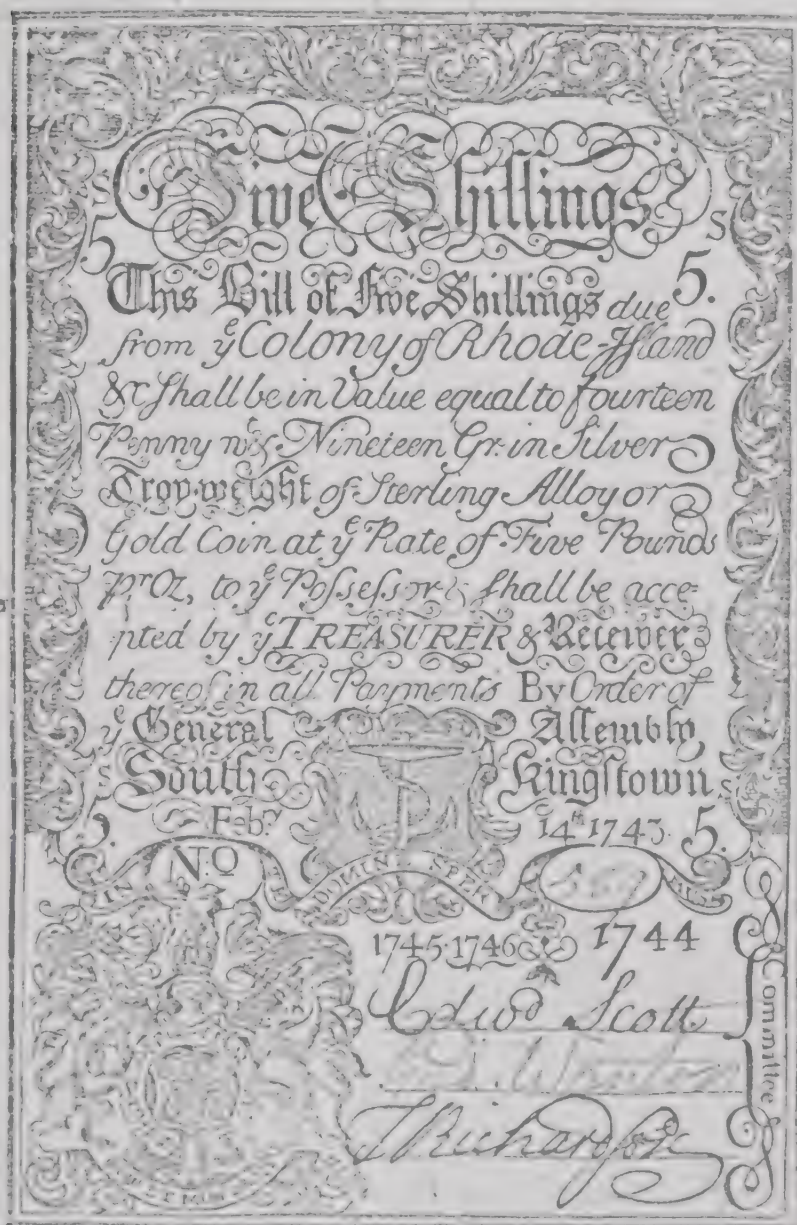 Five Shillings
S S
5 5.
This Bill of Five Shillings due
from yᵉ Colony of Rhode-Iſland
&c ſhall be in Value equal to fourteen
Penny wᵗ & Nineteen Gr. in Silver
Troy-weight of Sterling Alloy or
Gold Coin at yᵉ Rate of Five Pounds
pʳ Oz, to yᵉ Poſseſsor & ſhall be acce-
pted by yᵉ TREASURER & Receiver
thereof in all Payments By Order of
yᵉ General Aſſembly
South Kingſtown
S S
5. Febʳʸ 14ᵗʰ 1743. 5.
NO
IN DOMINO SPERAMUS
1745 1746 1744
Edwᵈ Scott
T Richardſon
Committee